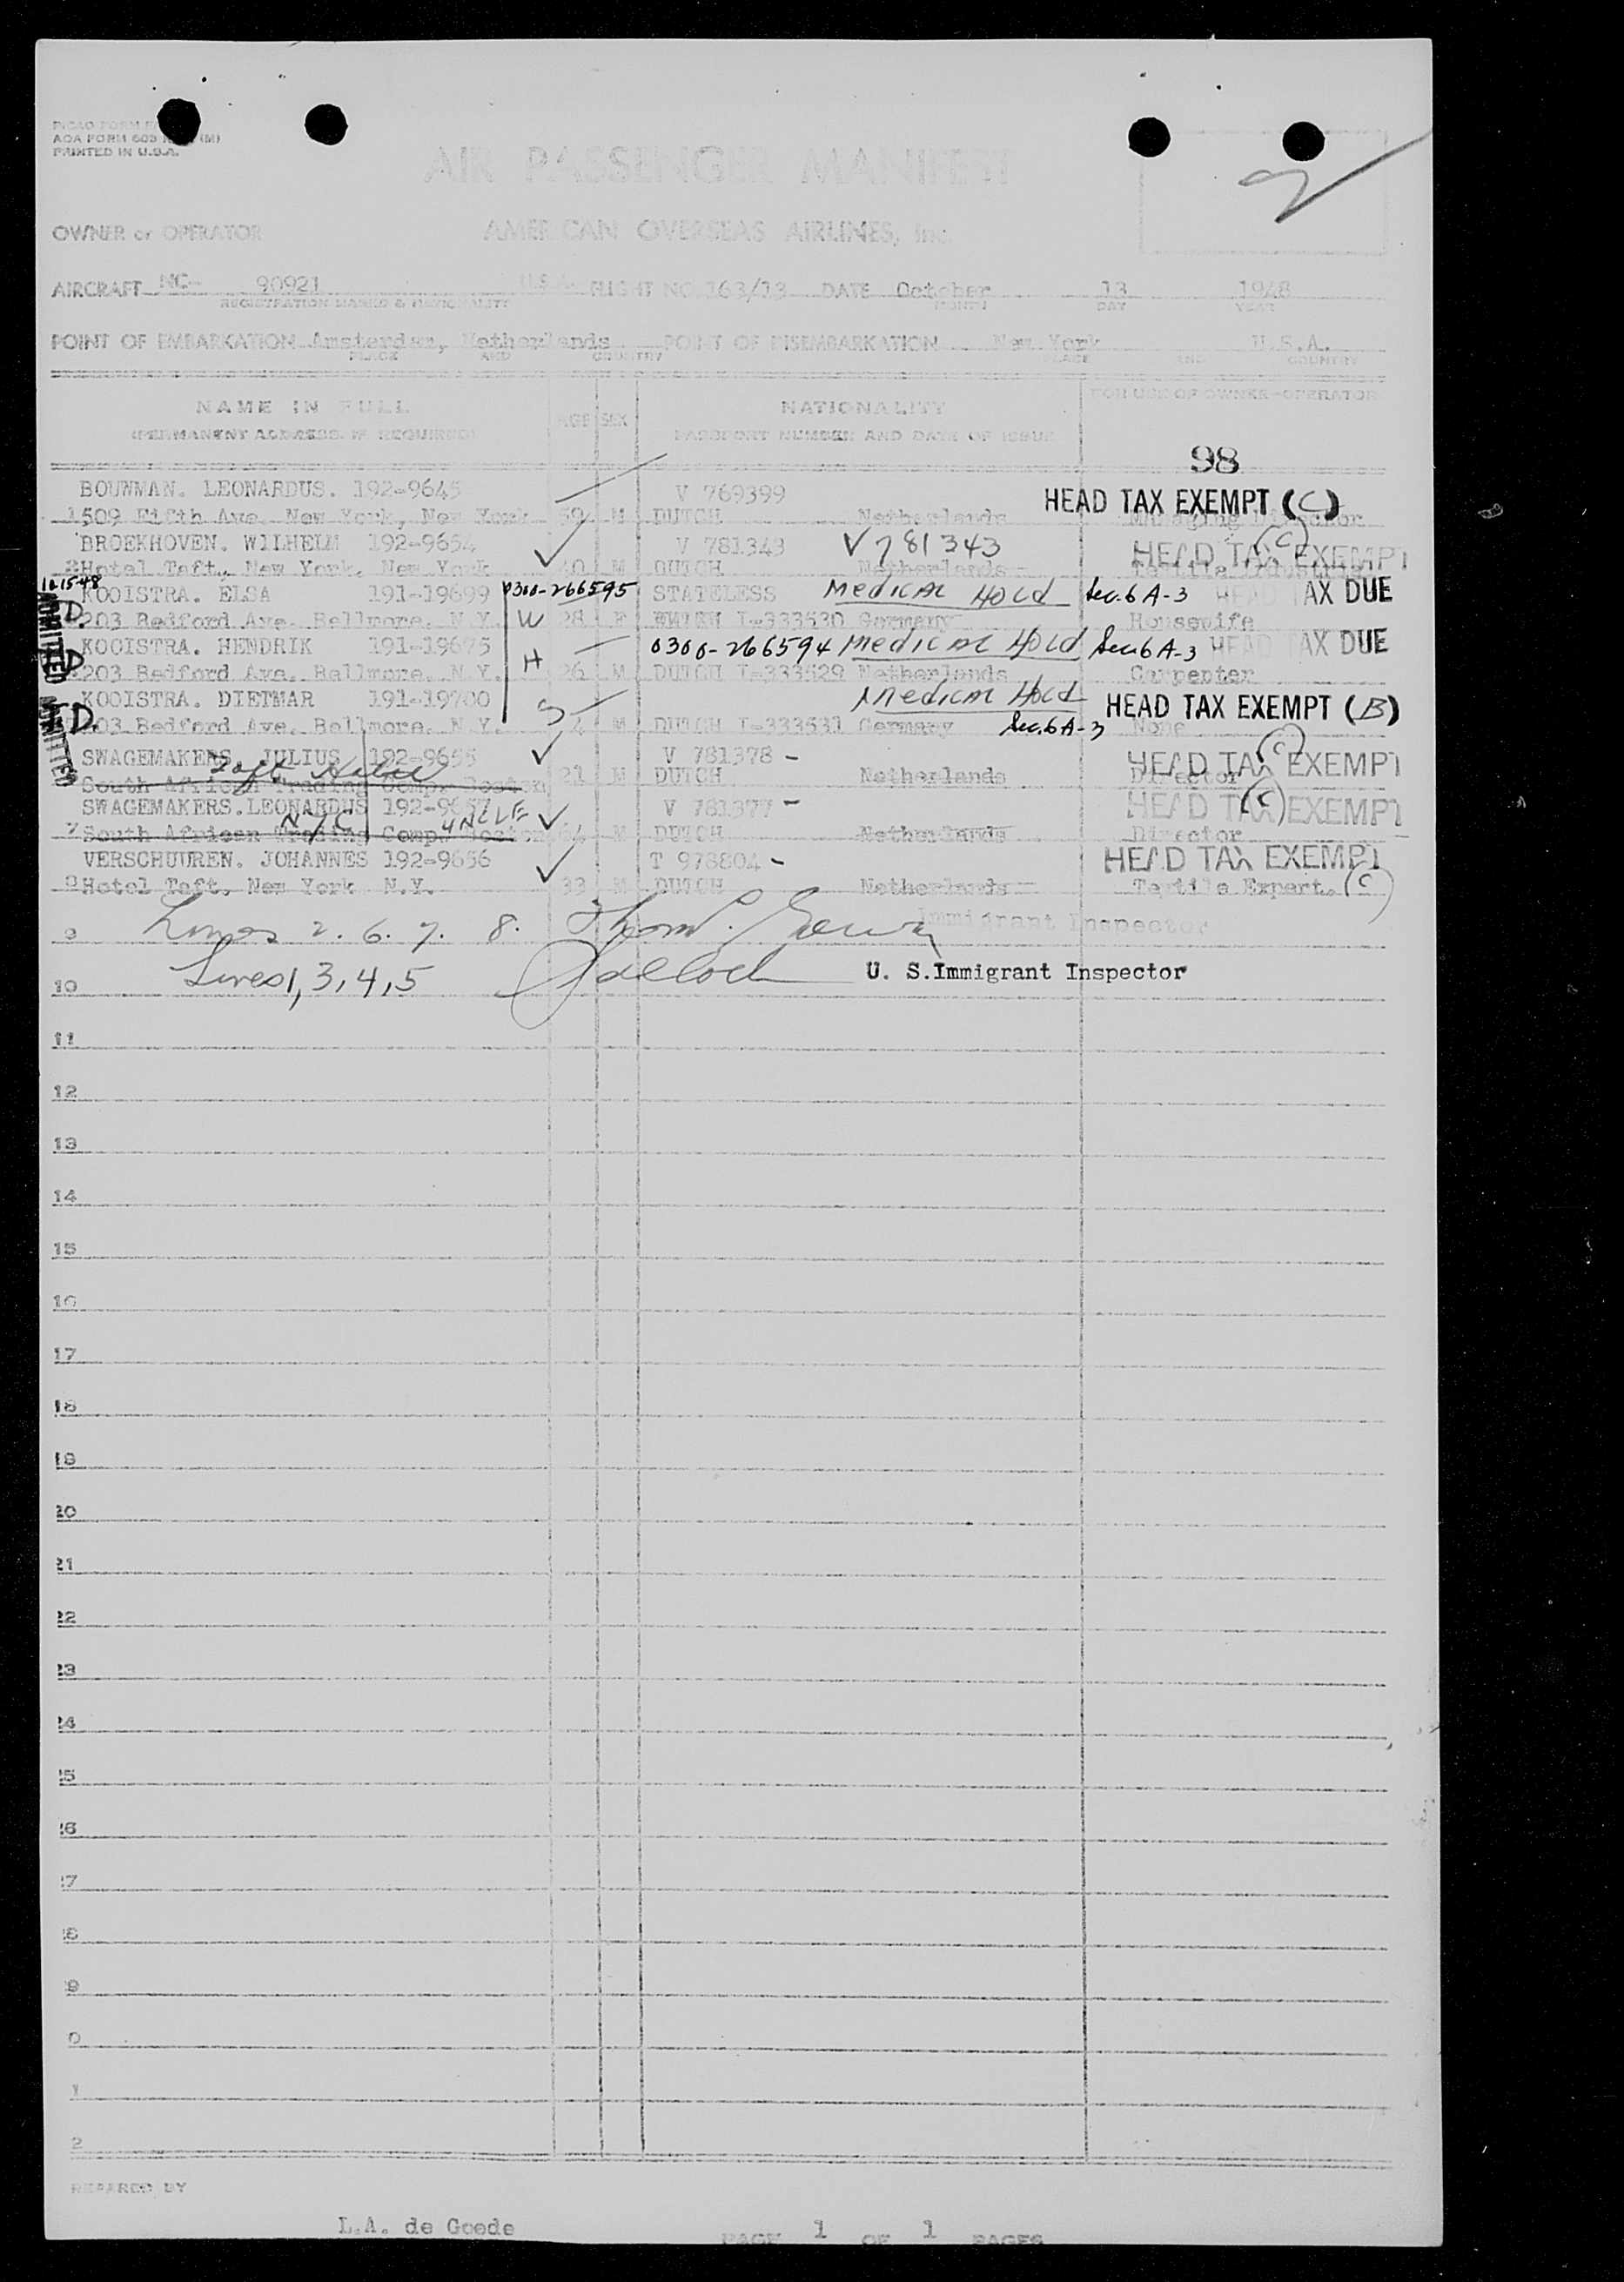 AOA FORM 603
PRINTED IN U.S.A.
AIR PASSENGER MANIFEST
OWNER or OPERATOR AMERICAN OVERSEAS AIRLINES, Inc.
AIRCRAFT NC- 90921 U.S.A. FLIGHT NO 163/13 DATE October 13 1948
REGISTRATION MARKS & NATIONALITY MONTH DAY YEAR
POINT OF EMBARKATION Amsterdam, Netherlands POINT OF DISEMBARKATION New York U.S.A.
PLACE AND COUNTRY PLACE AND COUNTRY
NAME IN FULL AGE SEX NATIONALITY FOR USE OF OWNER-OPERATOR
(PERMANENT ADDRESS IF REQUIRED) PASSPORT NUMBER AND DATE OF ISSUE
98
BOUWMAN. LEONARDUS. 192-9645 V 769399 HEAD TAX EXEMPT (C)
1 509 Fifth Ave. New York, New York 59 M DUTCH Netherlands Managing Director
BROEKHOVEN. WILHELM 192-9654 V 781343 V781343 HEAD TAX EXEMPT (C)
2 Hotel Taft, New York, New York 40 M DUTCH Netherlands
10-15-48
KOOISTRA. ELSA 191-19699 0300-266595 STATELESS Medical Hold Sec. 6 A-3 HEAD TAX DUE
203 Bedford Ave. Bellmore. N.Y. W 28 F I-333530 Germany Housewife
KOOISTRA. HENDRIK 191-19675 0300-266594 Medical Hold Sec 6 A-3 HEAD TAX DUE
203 Bedford Ave. Bellmore. N.Y. H 26 M DUTCH I-333529 Netherlands Carpenter
KOOISTRA. DIETMAR 191-19700 Medical Hold HEAD TAX EXEMPT (B)
203 Bedford Ave. Bellmore. N.Y. S 4 M DUTCH I-333531 Germany Sec. 6 A-3 None
ADMITTED
ADMITTED
SWAGEMAKERS. JULIUS 192-9655 V 781378 - HEAD TAX EXEMPT (C)
Taft Hotel
South African Trading Comp. Boston 21 M DUTCH Netherlands Director
SWAGEMAKERS. LEONARDUS 192-9657 UNCLE V 781377 - HEAD TAX EXEMPT (C)
N.Y.C
7 South African Trading Comp. Boston M DUTCH Netherlands Director
VERSCHUUREN. JOHANNES 192-9656 T 978804 - HEAD TAX EXEMPT
8 Hotel Taft, New York N.Y. 33 M DUTCH Netherlands Textile Expert. (C)
9 Lines 2. 6. 7. 8. Immigrant Inspector
10 Lines 1, 3, 4, 5 U. S. Immigrant Inspector
11
12
13
14
15
16
17
18
19
20
21
22
23
24
25
26
27
28
29
0
1
2
PREPARED BY
L.A. de Goede PAGE 1 OF 1 PAGES